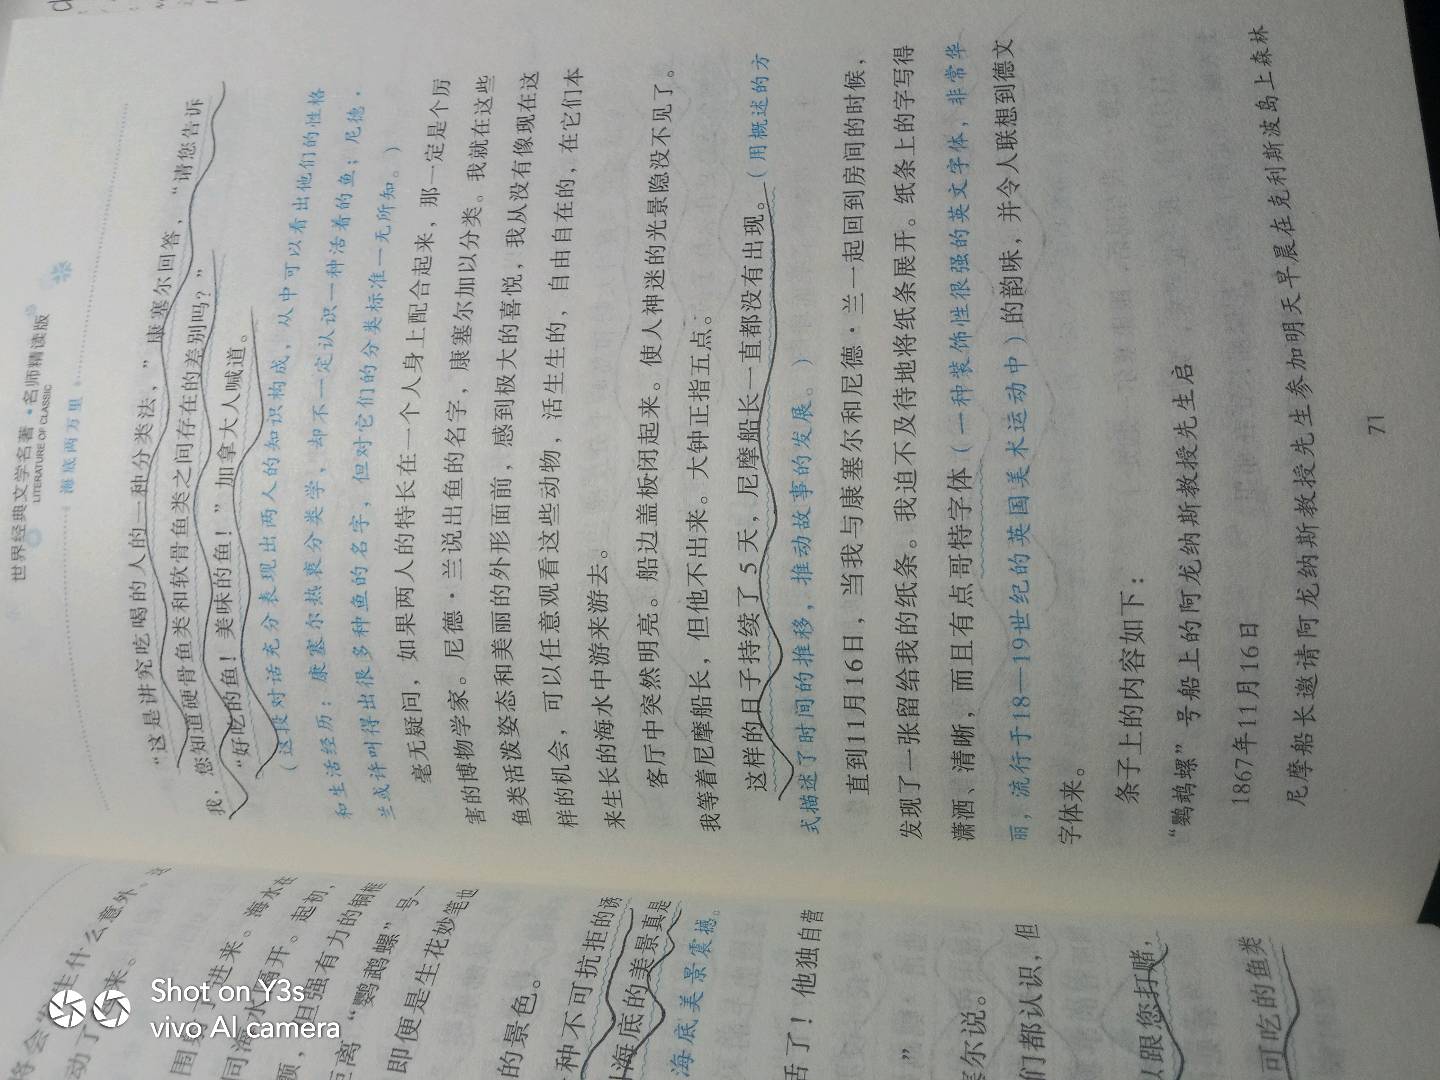 世界经典文学名著·名师精读版
LITERATURE OF CLASSIC
海底两万里
“这是讲究吃喝的人的一种分类法，”康塞尔回答，“请您告诉
我，您知道硬骨鱼类和软骨鱼类之间存在的差别吗？”
“好吃的鱼！美味的鱼！”加拿大人喊道。
（这段对话充分表现出两人的知识构成，从中可以看出他们的性格
和生活经历：康塞尔热衷分类学，却不一定认识一种活着的鱼；尼德·
兰或许叫得出很多种鱼的名字，但对它们的分类标准一无所知。）
毫无疑问，如果两人的特长在一个人身上配合起来，那一定是个厉
害的博物学家。尼德·兰说出鱼的名字，康塞尔加以分类。我就在这些
鱼类活泼姿态和美丽的外形面前，感到极大的喜悦，我从没有像现在这
样的机会，可以任意观看这些动物，活生生的，自由自在的，在它们本
来生长的海水中游来游去。
客厅中突然明亮。船边盖板闭起来。使人神迷的光景隐没不见了。
我等着尼摩船长，但他不出来。大钟正指五点。
这样的日子持续了5天，尼摩船长一直都没有出现。（用概述的方
式描述了时间的推移，推动故事的发展。）
直到11月16日，当我与康塞尔和尼德·兰一起回到房间的时候，
发现了一张留给我的纸条。我迫不及待地将纸条展开。纸条上的字写得
潇洒、清晰，而且有点哥特字体（一种装饰性很强的英文字体，非常华
丽，流行于18—19世纪的英国美术运动中）的韵味，并令人联想到德文
字体来。
条子上的内容如下：
“鹦鹉螺”号船上的阿龙纳斯教授先生启
1867年11月16日
尼摩船长邀请阿龙纳斯教授先生参加明天早晨在克利斯波岛上森林
71
生什么意外。
动了
进来。海水在
同海水隔开。起初，
且强有力的铜框
距离“鹦鹉螺”号
即便是生花妙笔也
的景色。
种不可抗拒的诱
海底的美景真是
海底美景震撼。
活了！他独自营
”
塞尔说。
们都认识，但
跟您打赌，
可吃的鱼类
Shot on Y3s
vivo AI camera